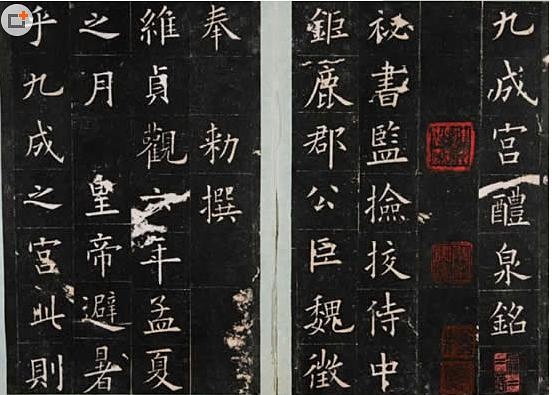 九成宮醴泉銘
祕書監撿挍侍中
鉅鹿郡公臣魏徵
奉　勑撰
維貞觀六年孟夏
之月　皇帝避暑
乎九成之宮此則